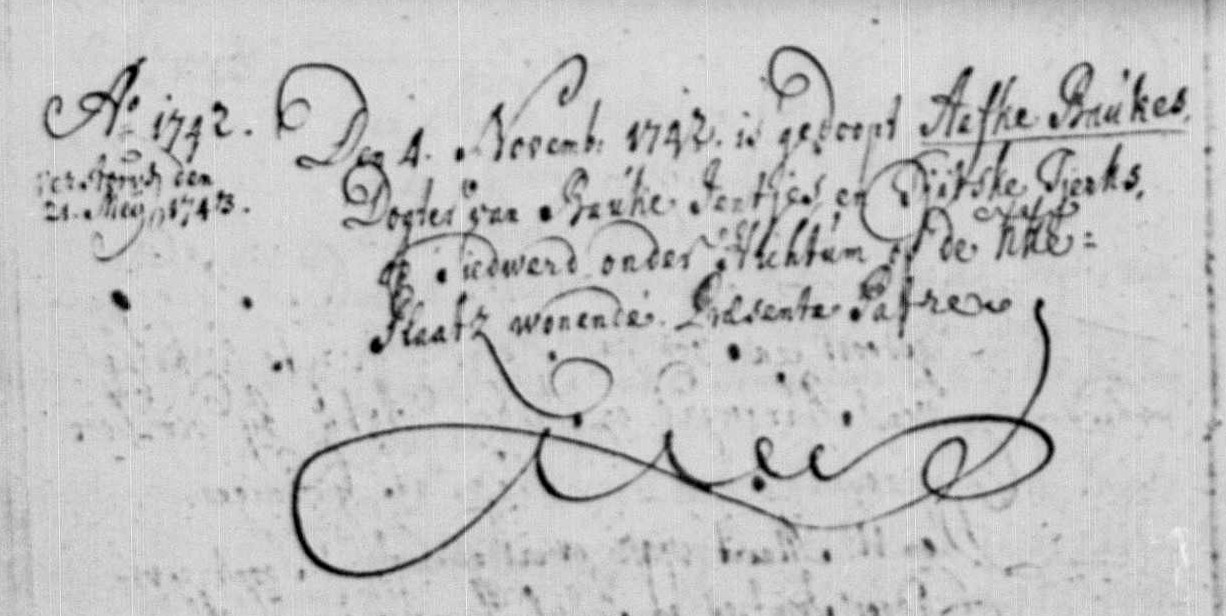 Aº 1742.
Den 4. Novemb: 1742. is gedoopt Aafke Baukes.
verstorven den
21. Mey 1743.
Dogter van Bauke Jentjes en Sjitske Tjerks,
Tiedwerd onder Nichtum op de
Plaatz wonende. Præsente Patre